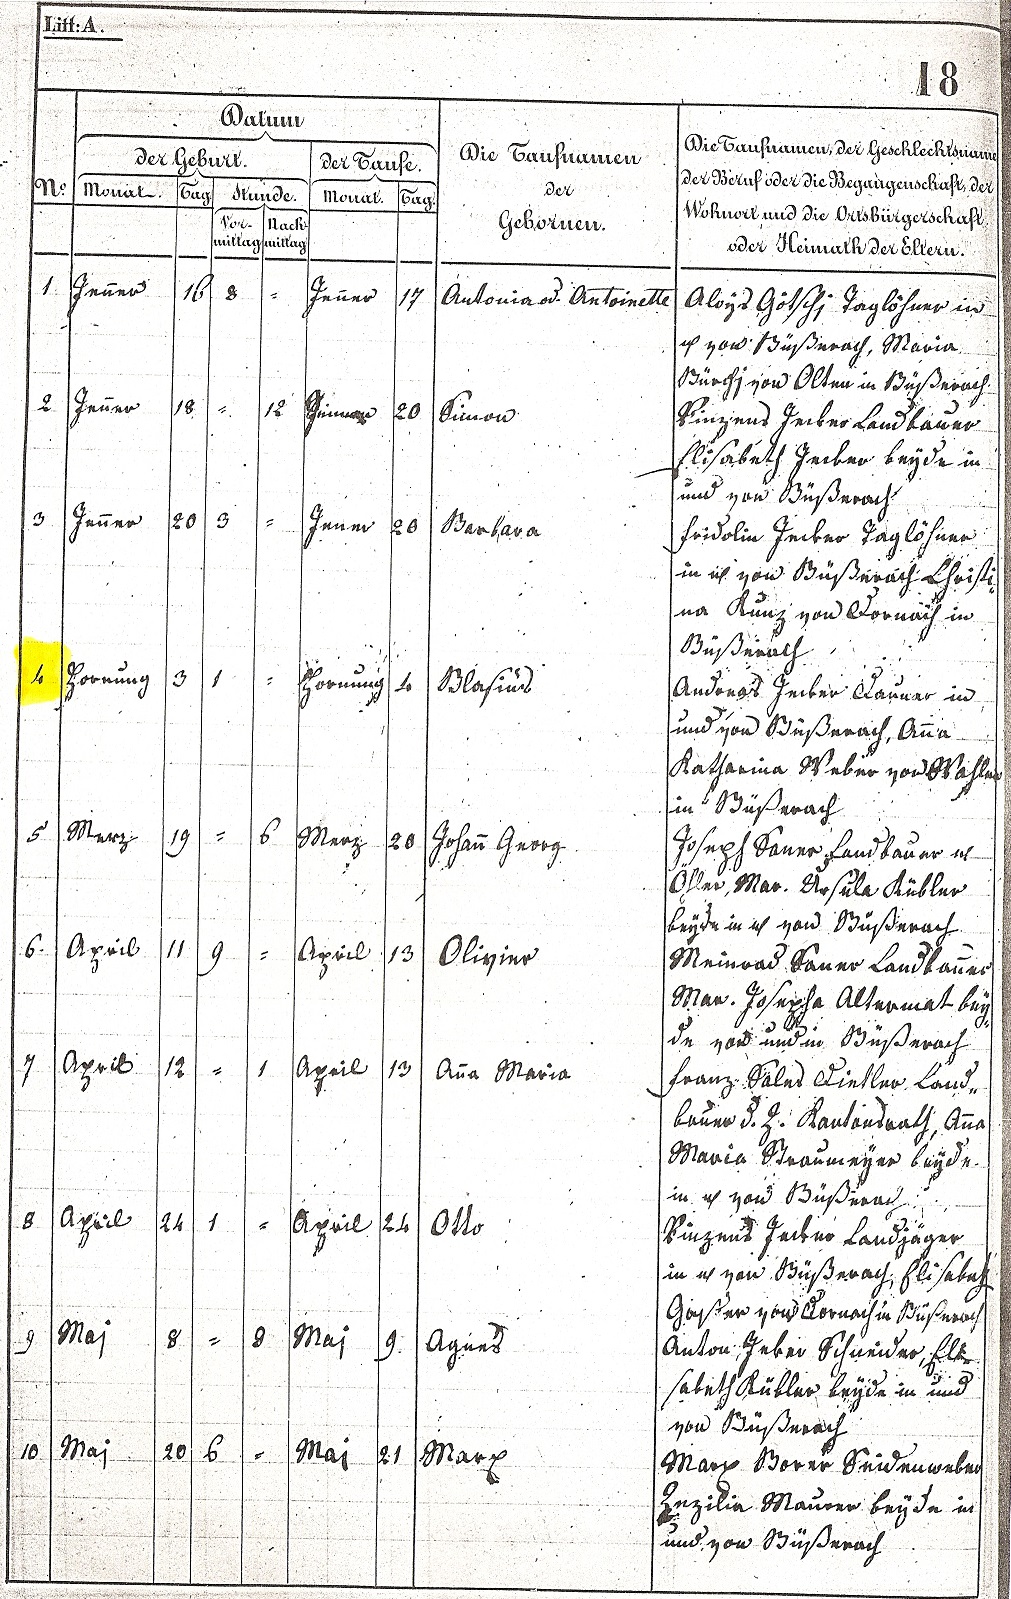 Litt: A.
18
Datum
der Geburt.
der Taufe.
Die Taufnamen
der
Gebornen.
Die Taufnamen, der Geschlechtsname
der Beruf oder die Begangenschaft, der
Wohnort und die Ortsbürgerschaft
oder Heimath der Eltern.
No.
Monat.
Tag
Stunde.
Monat.
Tag.
Vor-
mittag
Nach
mittag
1 Jenner 16 8 " Jenner 17 Antonia od. Antoinette Aloys Götschj Taglöhner in
u von Büßerach, Maria
Bürgj von Olten in Büßerach
2 Jenner 18 " 12 Jenner 20 Simon Vinzens Jecker Landbauer
Elisabeth Jecker beyde in
und von Büßerach
3 Jenner 20 3 " Jener 20 Barbara Fridolin Jecker Taglöhner
in u. von Büßerach Christi-
na Kunz von Dornach in
Büßerach
4 Hornung 3 1 " Hornung 4 Blasius Andreas Jecker in
und von Büßerach, Anna
Katharina Weber von Wahlen
in Büßerach
5 Merz 19 " 6 Merz 20 Johann Georg Joseph Saner Landbauer u
Öhler, Mar. Ursula Kübler
beyde in u von Büßerach
6. April 11 9 " April 13 Olivier Meinrad Saner Landbauer
Mar. Josepha Altermat bey-
de von und in Büßerach
7 April 12 " 1 April 13 Anna Maria Franz Sales Dietler Land-
bauer d. Z. Kantonsrath, Anna
Maria Straumeyer beyde
in u von Büßerach
8 April 24 1 " April 24 Otto Vinzens Jecker Landjäger
in u von Büßerach, Elisabeth
Gasser von Dornach in Büßerach
9 Maj 8 " 8 Maj 9 Agnes Anton Jeker Schneider, Eli-
sabeth Kübler beyde in und
von Büßerach
10 Maj 20 6 " Maj 21 Marx Marx Borer Seidenweber
Zezilia Maurer beyde in
und von Büßerach